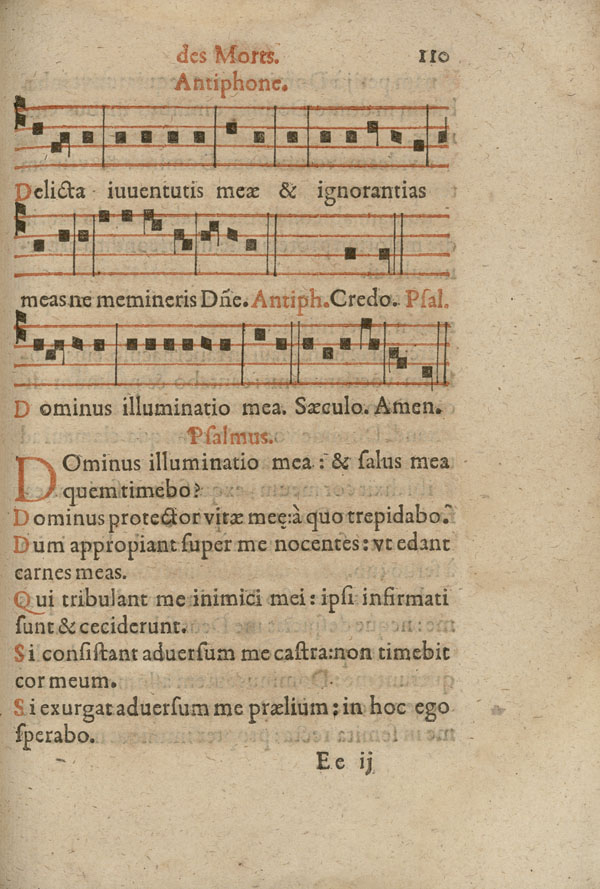 des Morts. 110
Antiphone.
Delicta iuuentutis meæ & ignorantias
meas ne memineris Dñe. Antiph. Credo. Psal.
Dominus illuminatio mea. Sæculo. Amen.
Psalmus.
DOminus illuminatio mea : & salus mea
quem timebo?
Dominus protector vitæ meę: à quo trepidabo?
Dum appropiant super me nocentes : vt edant
carnes meas.
Qui tribulant me inimici mei : ipsi infirmati
sunt & ceciderunt.
Si consistant aduersum me castra: non timebit
cor meum.
Si exurgat aduersum me prælium : in hoc ego
sperabo.
Ee ij